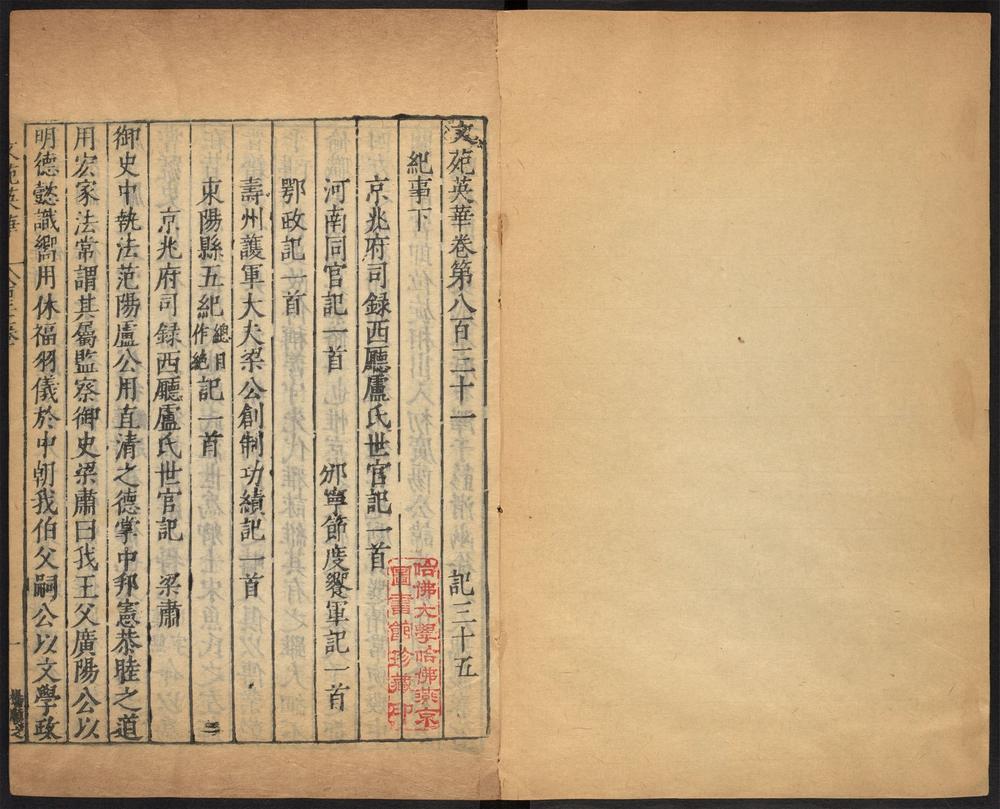 文苑英華卷第八百三十一　　記三十五
紀事下
京兆府司録西廳盧氏世官記一首
河南同官記一首　　邠寧節度饗軍記一首
鄂政記一首
壽州護軍大夫梁公創制功績記一首
東陽縣五紀總目作絶記一首
京兆府司録西廳盧氏世官記　梁肅
御史中執法范陽盧公用直清之德掌中邦憲恭睦之道
用宏家法常謂其屬監察御史梁肅曰我王父廣陽公以
明德懿識嚮用休福羽儀於中朝我伯父嗣公以文學政
文苑英華
一
哈佛大學哈佛燕京
圖書館珍藏印